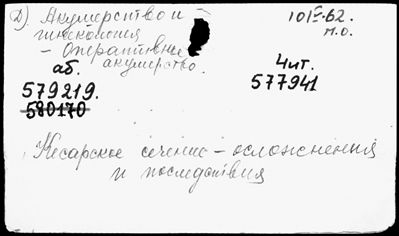 Д) Акушерство и
гинекология
– Оперативное
акушерство.
101⁵-62.
м.о.
аб.
579219.
580170
Чит.
577941
Кесарское сечение – осложнения
и последствия